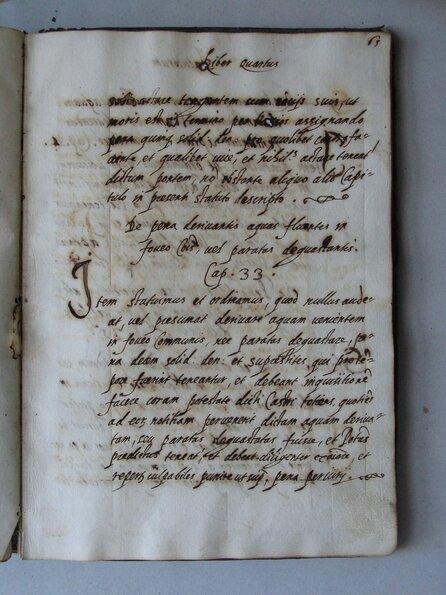 63
Liber Quartus
moris est et termino per assignando
pena quinq solid. den. pro quolibet contrafa-
ciente et qualibet vice, et nihil.s actare teneat.r
dictum pontem, no obstante aliquo alio Capi-
tulo in presenti statuto descripto.
De pena derivantis aquas fluentes in
foveo Cois, vel paratas deguastantis.
Cap. 33.
Item statuimus et ordinamus, quod nullus aude-
at, vel presumat derivare aquam venientem
in foveo Communis, nec paratas deguastare, pe-
na decem solid. den. et suprastites, qui pro te-
pore fuerint teneantur, et debeant inquisitione
facere coram potestate dicti Castri totiens, quotiens
ad eor notitiam pervenerit dictam aquam deriva-
tam, seu paratas deguastatas fuisse, et Potas
predictus teneat, et debeat diligenter exigere, et
repertos culpabiles punire ut sup. pena periurij.